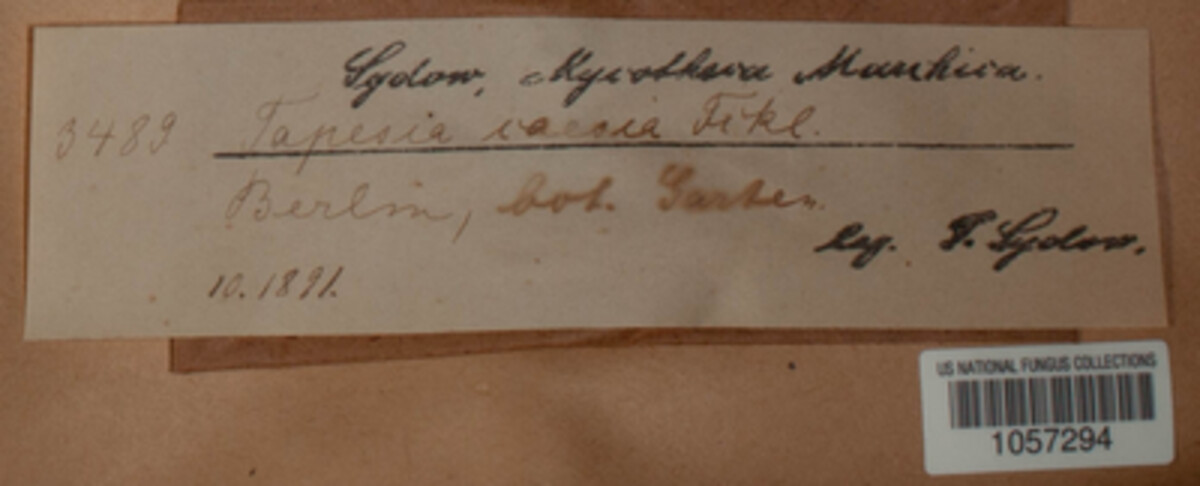 Sydow, Mycotheca Marchica.
3489 Tapesia caesia Fckl.
Berlin, bot. Garten.
leg. P. Sydow.
10.1891.
US NATIONAL FUNGUS COLLECTIONS
1057294